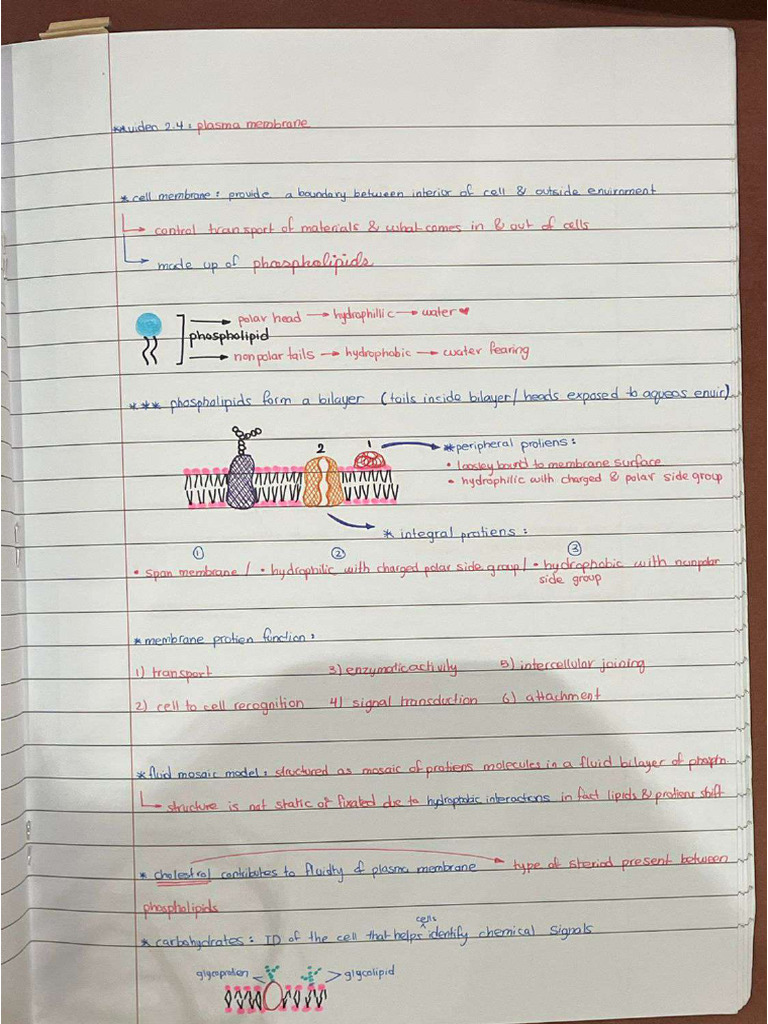 **viden 2.4: plasma membrane
* cell membrane: provide a boundary between interior of cell & outside enuirnment
control transport of materials & what comes in & out of cells
made up of phospholipids
polar head → hydrophillic → water ♥
phospholipid
nonpolar tails → hydrophobic → water fearing
*** phospholipids form a bilayer (tails inside bilayer/ heads exposed to aqueos enuir)
2 1 *peripheral protiens:
• loosley bound to membrane surface
• hydrophilic with charged & polar side group
* integral protiens:
① ② ③
• span membrane / • hydrophilic with charged polar side group / • hydrophobic with nonpolar
side group
* membrane protien function:
1) transport 3) enzymatic activity 5) intercellular joining
2) cell to cell recognition 4) signal transduction 6) attachment
* fluid mosaic model: structured as mosaic of protiens molecules in a fluid bilayer of
structure is not static or fixated due to hydrophobic interactions in fact lipids & protiens shift
* cholestrol contributes to fluidty of plasma membrane → type of steriod present between
phospholipids
cells
* carbohydrates: ID of the cell that helps identify chemical signals
glycoprotien glycolipid